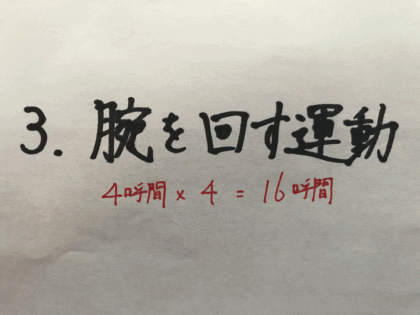 3. 腕を回す運動
4呼間 × 4 = 16呼間